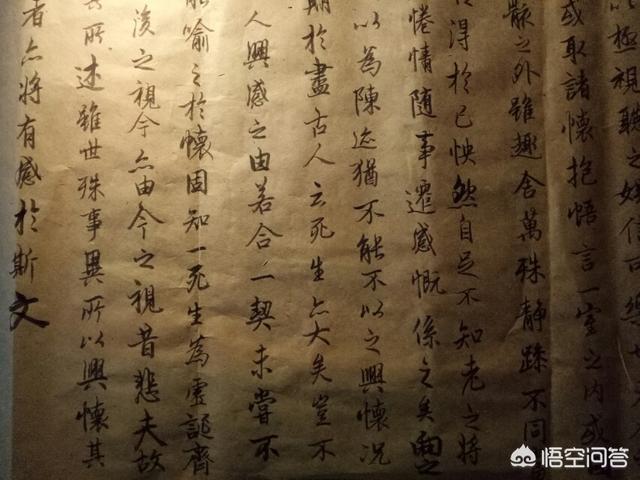 以極視聽之娱信可樂
或取諸懷抱悟言一室之内或
骸之外雖趣舍萬殊静躁不同
得於己怏然自足不知老之將
惓情随事遷感慨係之矣向之
以為陳迹猶不能不以之興懷况
期於盡古人云死生亦大矣豈不
人興感之由若合一契未嘗不
能喻之於懷固知一死生為虛誕齊
後之視今亦由今之視昔悲夫故
所述雖世殊事異所以興懷其
者亦將有感於斯文
悟空问答